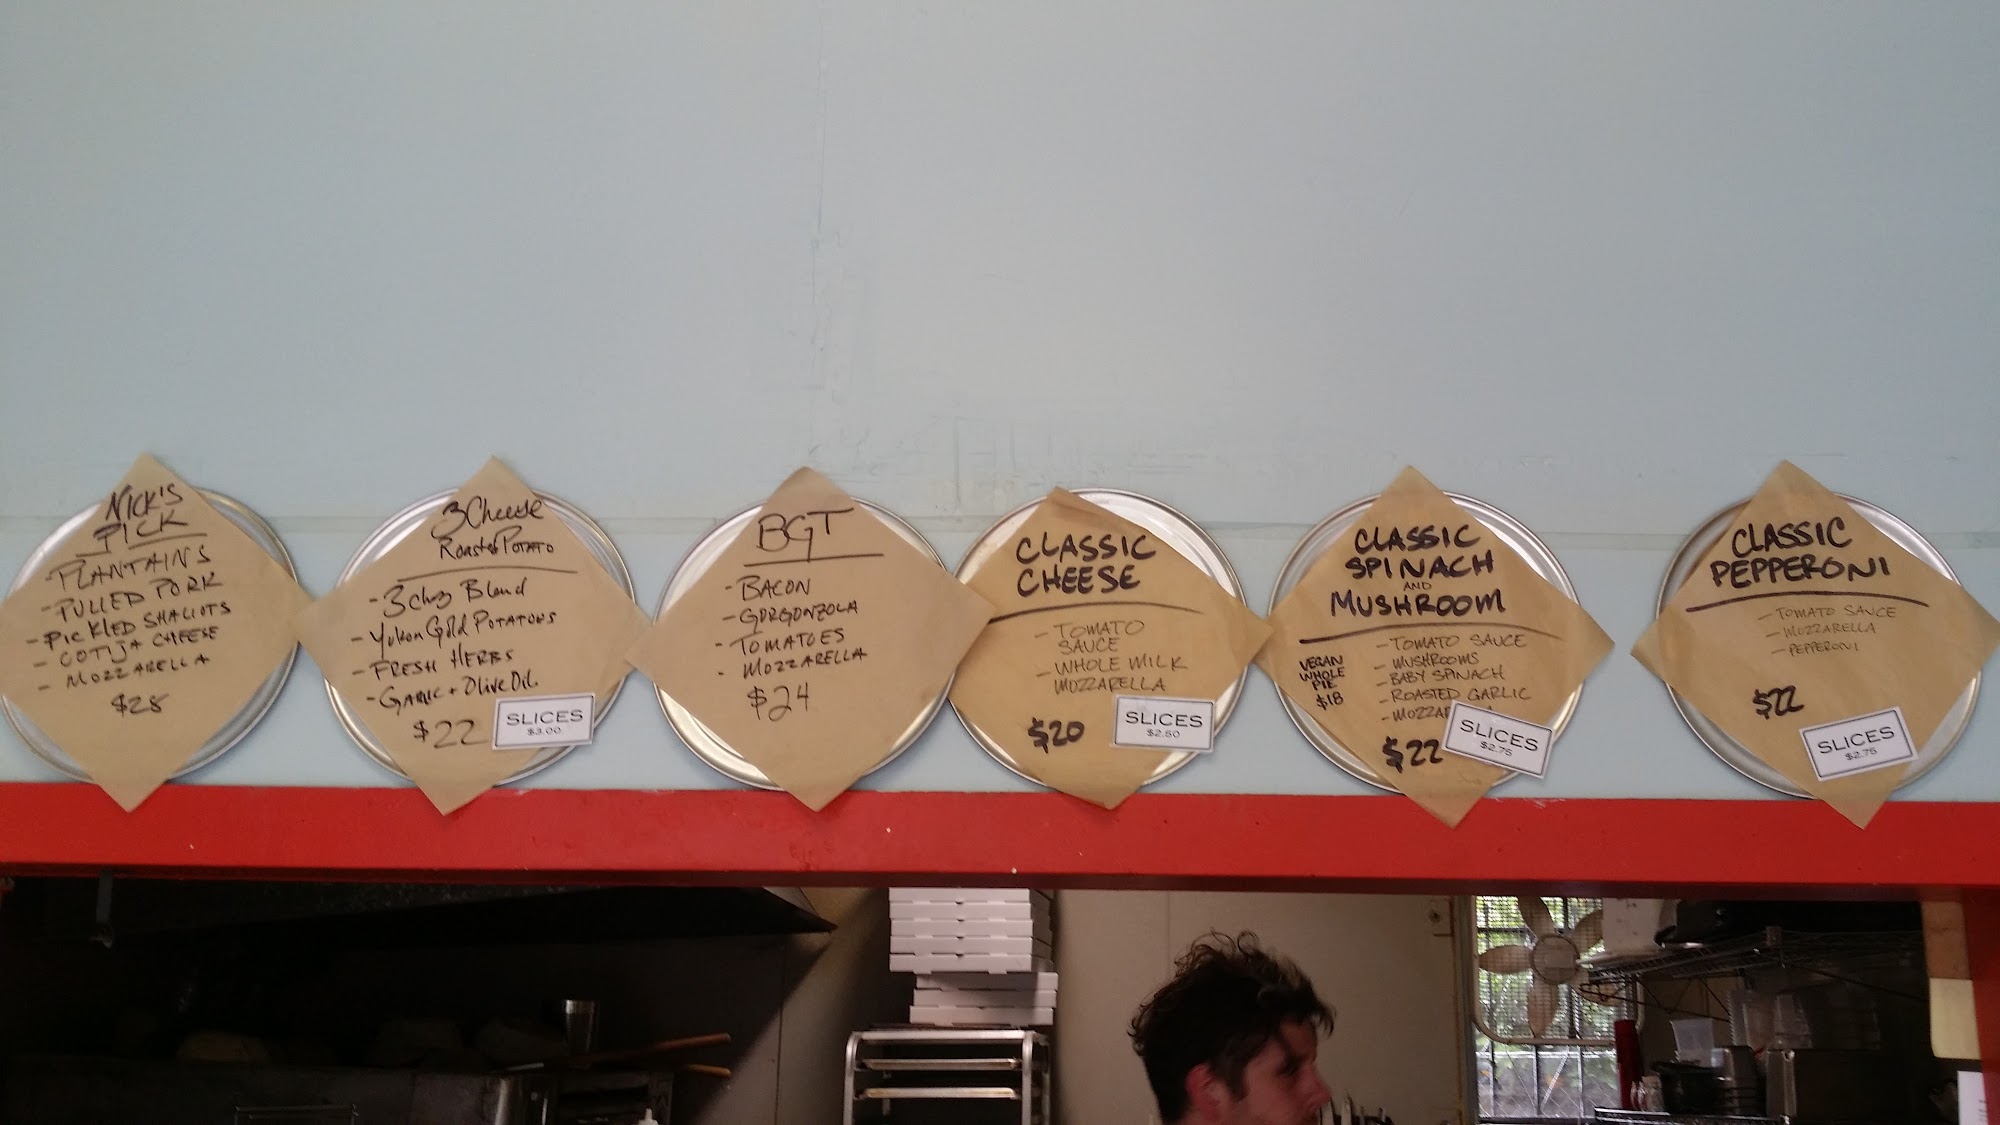 NICK'S
PICK
PLANTAINS
- PULLED PORK
- PICKLED SHALLOTS
- COTIJA CHEESE
- MOZZARELLA
$28
3 Cheese
Roasted Potato
- 3 chz Blend
- Yukon Gold Potatoes
- Fresh Herbs
- Garlic + Olive Oil
$22
SLICES
$3.00
BGT
- BACON
- GORGONZOLA
- TOMATOES
- MOZZARELLA
$24
CLASSIC
CHEESE
- TOMATO
SAUCE
- WHOLE MILK
MOZZARELLA
$20
SLICES
$2.50
CLASSIC
SPINACH
AND
MUSHROOM
- TOMATO SAUCE
- MUSHROOMS
- BABY SPINACH
- ROASTED GARLIC
- MOZZAR A
VEGAN
WHOLE
PIE
$18
$22
SLICES
$2.75
CLASSIC
PEPPERONI
- TOMATO SAUCE
- MOZZARELLA
- PEPPERONI
$22
SLICES
$2.75